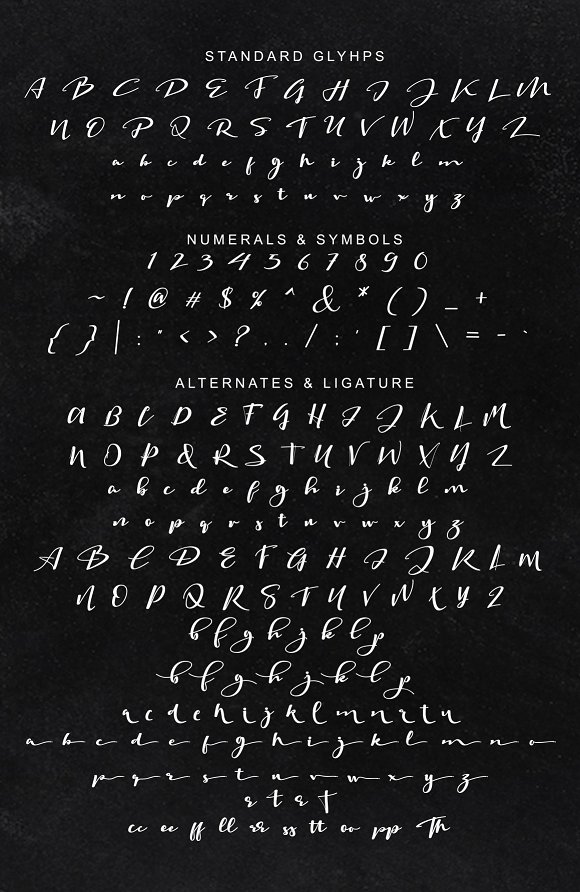 STANDARD GLYHPS
A B C D E F G H I J K L M
N O P Q R S T U V W X Y Z
a b c d e f g h i j k l m
n o p q r s t u v w x y z
NUMERALS & SYMBOLS
1 2 3 4 5 6 7 8 9 0
~ ! @ # $ % ^ & * ( ) _ +
{ } | : " < > ? . . / : ' [ ] \ = - `
ALTERNATES & LIGATURE
A B C D E F G H I J K L M
N O P Q R S T U V W X Y Z
a b c d e f g h i j k l m
n o p q r s t u v w x y z
A B C D E F G H I J K L M
N O P Q R S T U V W X Y Z
b f g h j k l p
b f g h j k l p
a c d e h i j k l m n r t u
a b c d e f g h i j k l m n o
p q r s t u v w x y z
r t r t
cc ee ff ll rr ss tt oo pp Th